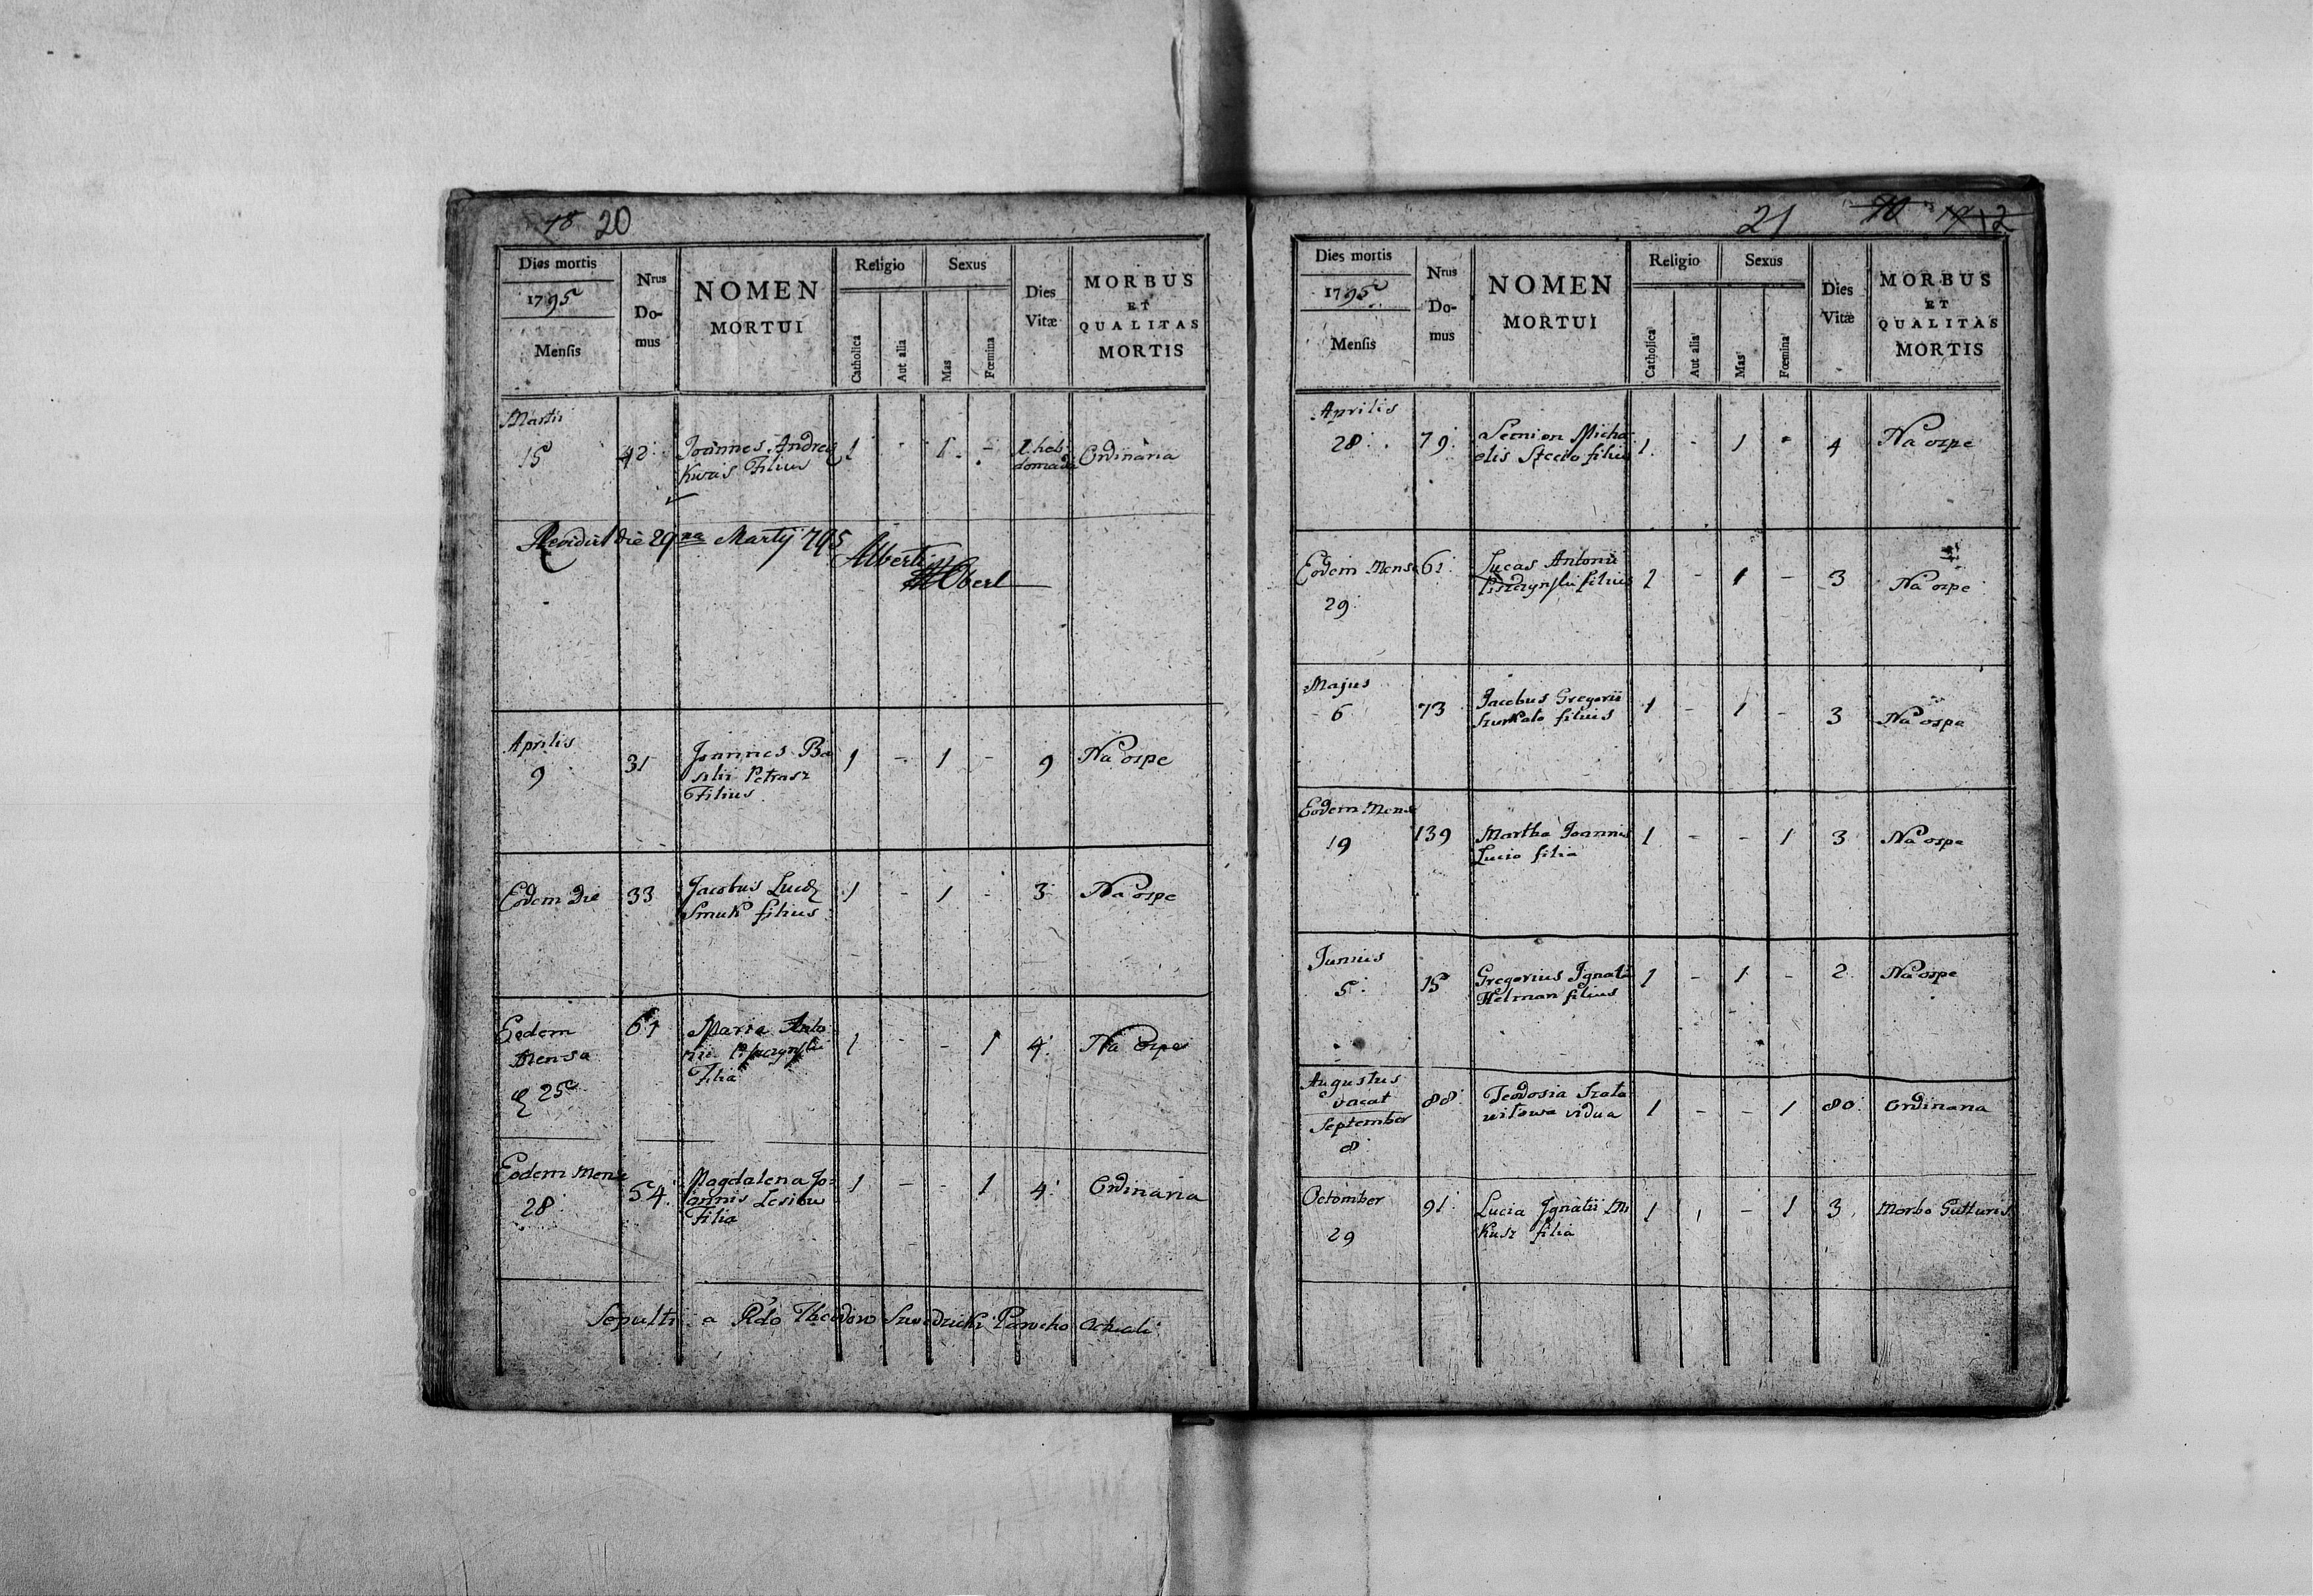 18 20
Dies mortis
1795
Mensis
Nrus
Do-
mus
NOMEN
MORTUI
Religio
Catholica
Aut alia
Sexus
Mas
Fœmina
Dies
Vitæ
MORBUS
ET
QUALITAS
MORTIS
Martii
15 42 Joannes Andreæ 1 - 1 - 1 heb Ordinaria
Kwas Filius domada
Revidit die 29na Martij 795
Albertus
Oberl
Aprilis
9 31 Joannes Ba 1 - 1 - 9 Na ospe
silii Petrasz
Filius
Eodem Die 33 Jacobus Lucæ 1 - 1 - 3 Na ospe
Smuk filius
Eodem 61 Maria Anto 1 - - 1 4 Na ospe
Mense nii
25 Filia
Eodem Mense 54 Magdalena Jo= 1 - - 1 4 Ordinaria
28 annis Lesiow
Filia
Sepulti a Rdo Theodoro Szwedzicki Parocho Actuali
21 10 12
Dies mortis
1795
Mensis
Nrus
Do-
mus
NOMEN
MORTUI
Religio
Catholica
Aut alia
Sexus
Mas
Fœmina
Dies
Vitæ
MORBUS
ET
QUALITAS
MORTIS
Aprilis
28 79 Semion Micha 1 - 1 - 4 Na ospe
elis filius
Eodem Mense 61 Lucas Antonii 1 - 1 - 3 Na ospe
29 filius
Majus
6 73 Jacobus Gregorii 1 - 1 - 3 Na ospe
Szorkalo filius
Eodem Mense
19 139 Martha Joannis 1 - - 1 3 Na ospe
Lucio filia
Junius
5 15 Gregorius Ignatii 1 - 1 - 2 Na ospe
Helman filius
Augustus
vacat 88 Teodosia Szala 1 - - 1 80 Ordinaria
September witowa vidua
8
Octomber 91 Lucia Ignatii Mi 1 - - 1 3 Morbo Gutturis
29 kusz filia